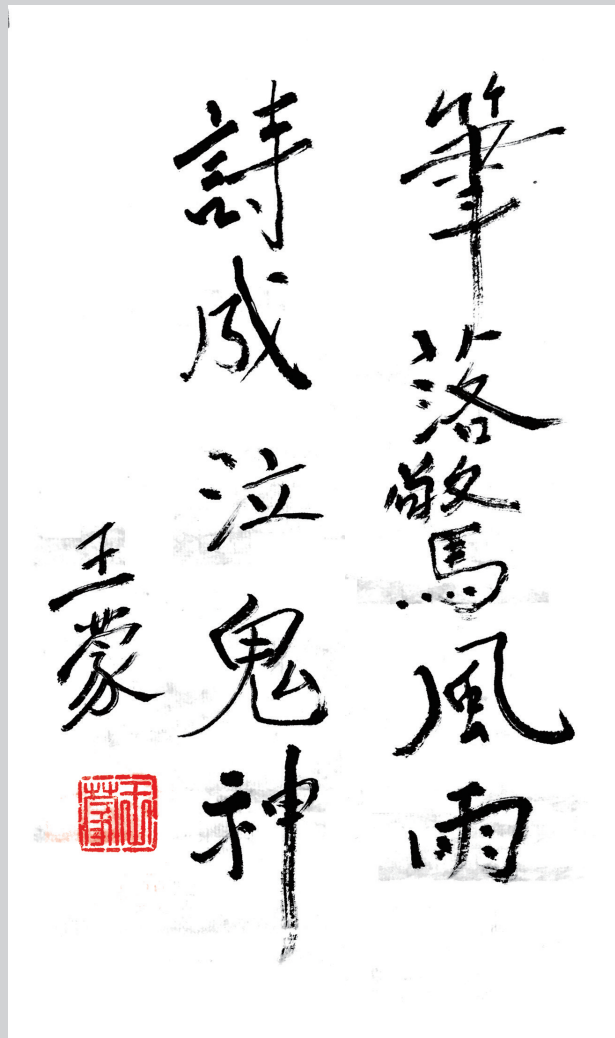 筆落驚風雨
詩成泣鬼神
王蒙
王蒙